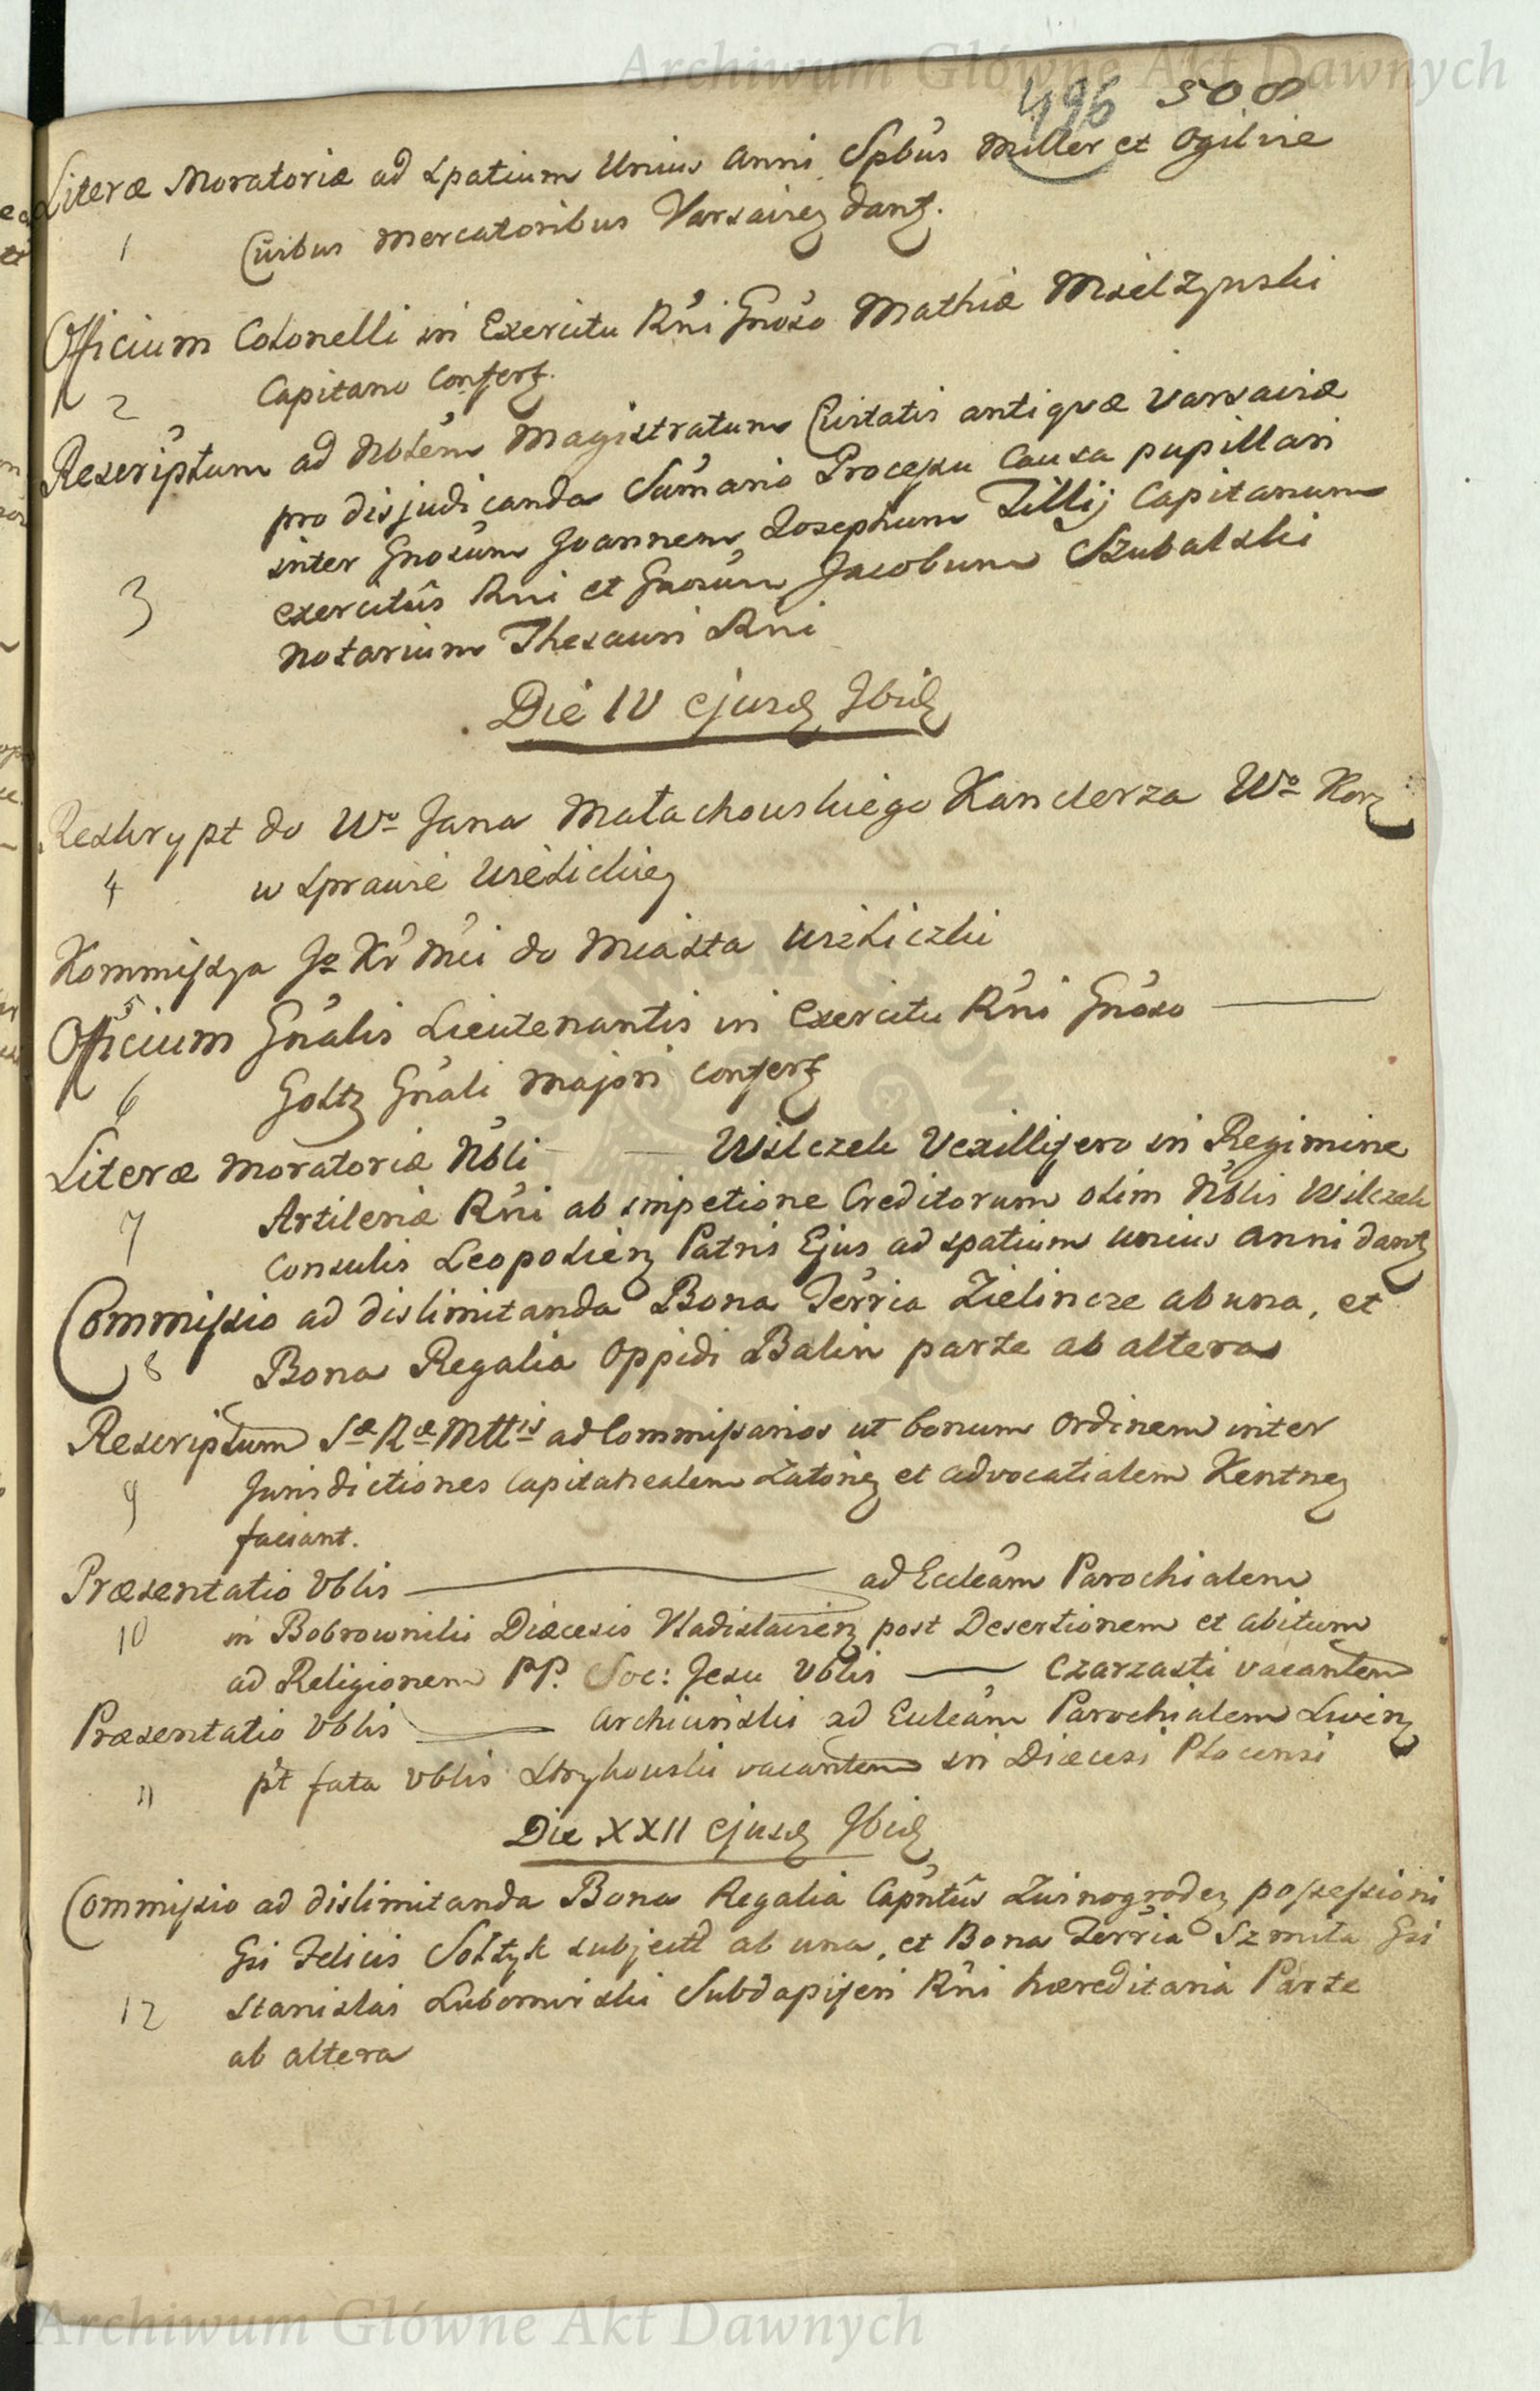 Archiwum Główne Akt Dawnych
496 508
Literæ Moratoriæ ad spatium Unius anni Spbus Miller et Ogilvie
1 Civibus Mercatoribus Varsavien dant.
Officium Colonelli in Exercitu Rni Gnoso Mathiæ Mielzynski
2 Capitano Confert.
Rescriptum ad Nblem Magistratum Civitatis antiquæ Varsaviæ
pro disjudicanda Sumario Processu Causa pupillari
inter Gnosum Joannem Josephum Tillij Capitanum
3 exercitûs Rni et Gnosum Jacobum Szubalski
Notarium Thesauri Rni
Die IV ejusd Ibid
Reskrypt do Wo Jana Małachowskiego Kanclerza Wo Kor
4 w sprawie Wielickiey
Kommissya Jo Kr Mci do Miasta Wieliczki
5
Officium Gnalis Lieutenantis in Exercitu Rni Gnoso
6 Goltz Gnali Majori confert
Literæ Moratoriæ Nbli Wilczek Vexillifero in Regimine
7 Artileriæ Rni ab impetione Creditorum olim Nblis Wilczek
Consulis Leopolien Patris Ejus ad spatium unius Anni dant
Commissio ad dislimitanda Bona Terria Zielincze ab una, et
8 Bona Regalia Oppidi Balin parte ab altera
Rescriptum Sæ Ræ Mttis ad Commissarios ut bonum Ordinem inter
9 Jurisdictiones Capitanealem Zatorien et advocatialem Kentnen
faciant.
Præsentatio Vblis ad Eccleam Parochialem
10 in Bobrowniki Diæcesis Vladislavien post Desertionem et abitum
ad Religionem PP. Soc: Jesu Vblis Czarzasti vacantem
Præsentatio Vblis Archiuński ad Eccleam Parochialem Livien
11 pt fata Vblis Strykowski vacantem in Diæcesi Plocensi
Die XXII ejusd Ibid
Commissio ad dislimitanda Bona Regalia Capntûs Zwinogroden possessioni
Gsi Felicis Sołtyk subject ab una, et Bona Terria Szmiła Gsi
12 Stanislai Lubomirski Subdapiferi Rni hæreditaria Parte
ab altera
Archiwum Główne Akt Dawnych